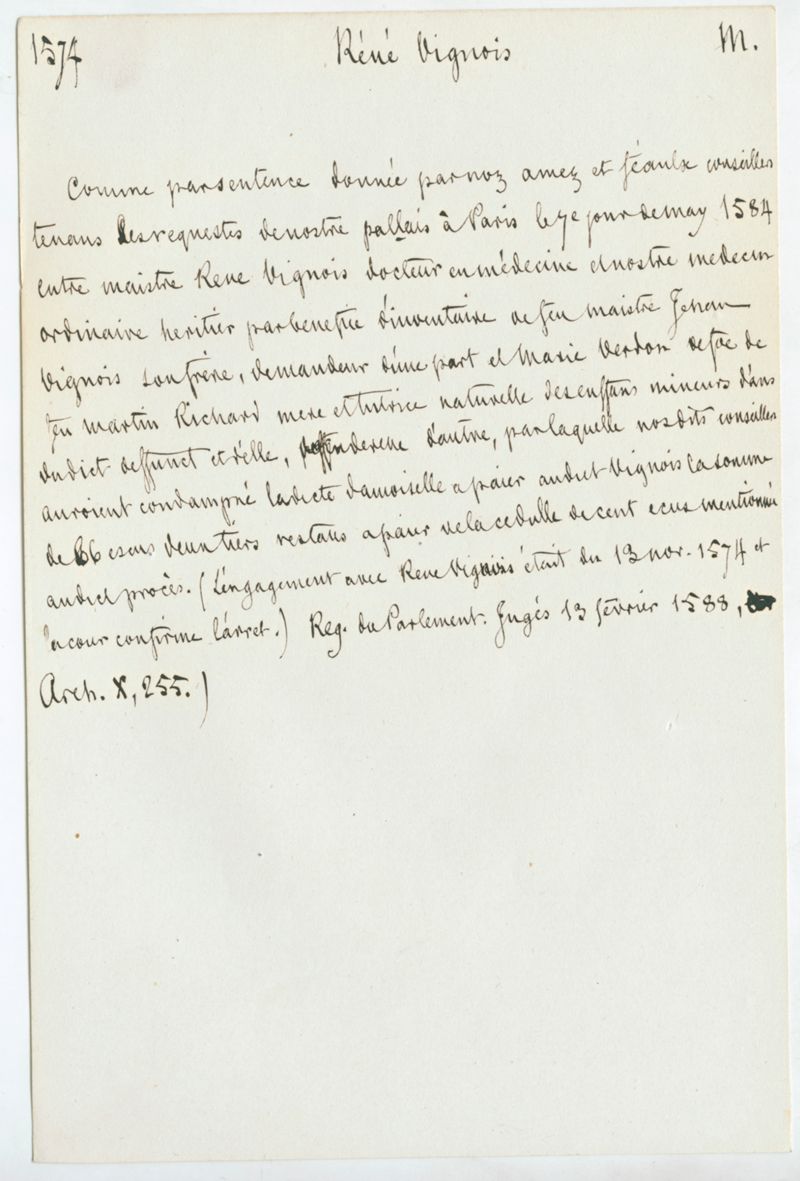 1574 Réné Vignois M.
Comme par sentence donnée par noz amez et féaulx conseillers
tenans les requestes de nostre pallais à Paris le 7e jour de may 1584
entre maistre Rene Vignois docteur en médecine et nostre medecin
ordinaire heritier par benefice d'inventaire de feu maistre Jehan
Vignois son frère, demandeur d'une part et Marie Verdon vefve de
feu Martin Richard mere et tutrice naturelle des enffans mineurs d'ans
dudict deffunct et d'elle, deffenderesse d'autre, par laquelle nosdits conseillers
auroient condampné ladicte damoiselle a paier audict Vignois la somme
de 66 escus deux tiers restans a paier de la cedulle de cent ecus mentionnée
audict procès. (L'engagement avec Rene Vignois était du 13 nov. 1574 et
la cour confirme l'arret.) Reg. du Parlement. Jugés 13 février 1588,
Arch. X, 255.)